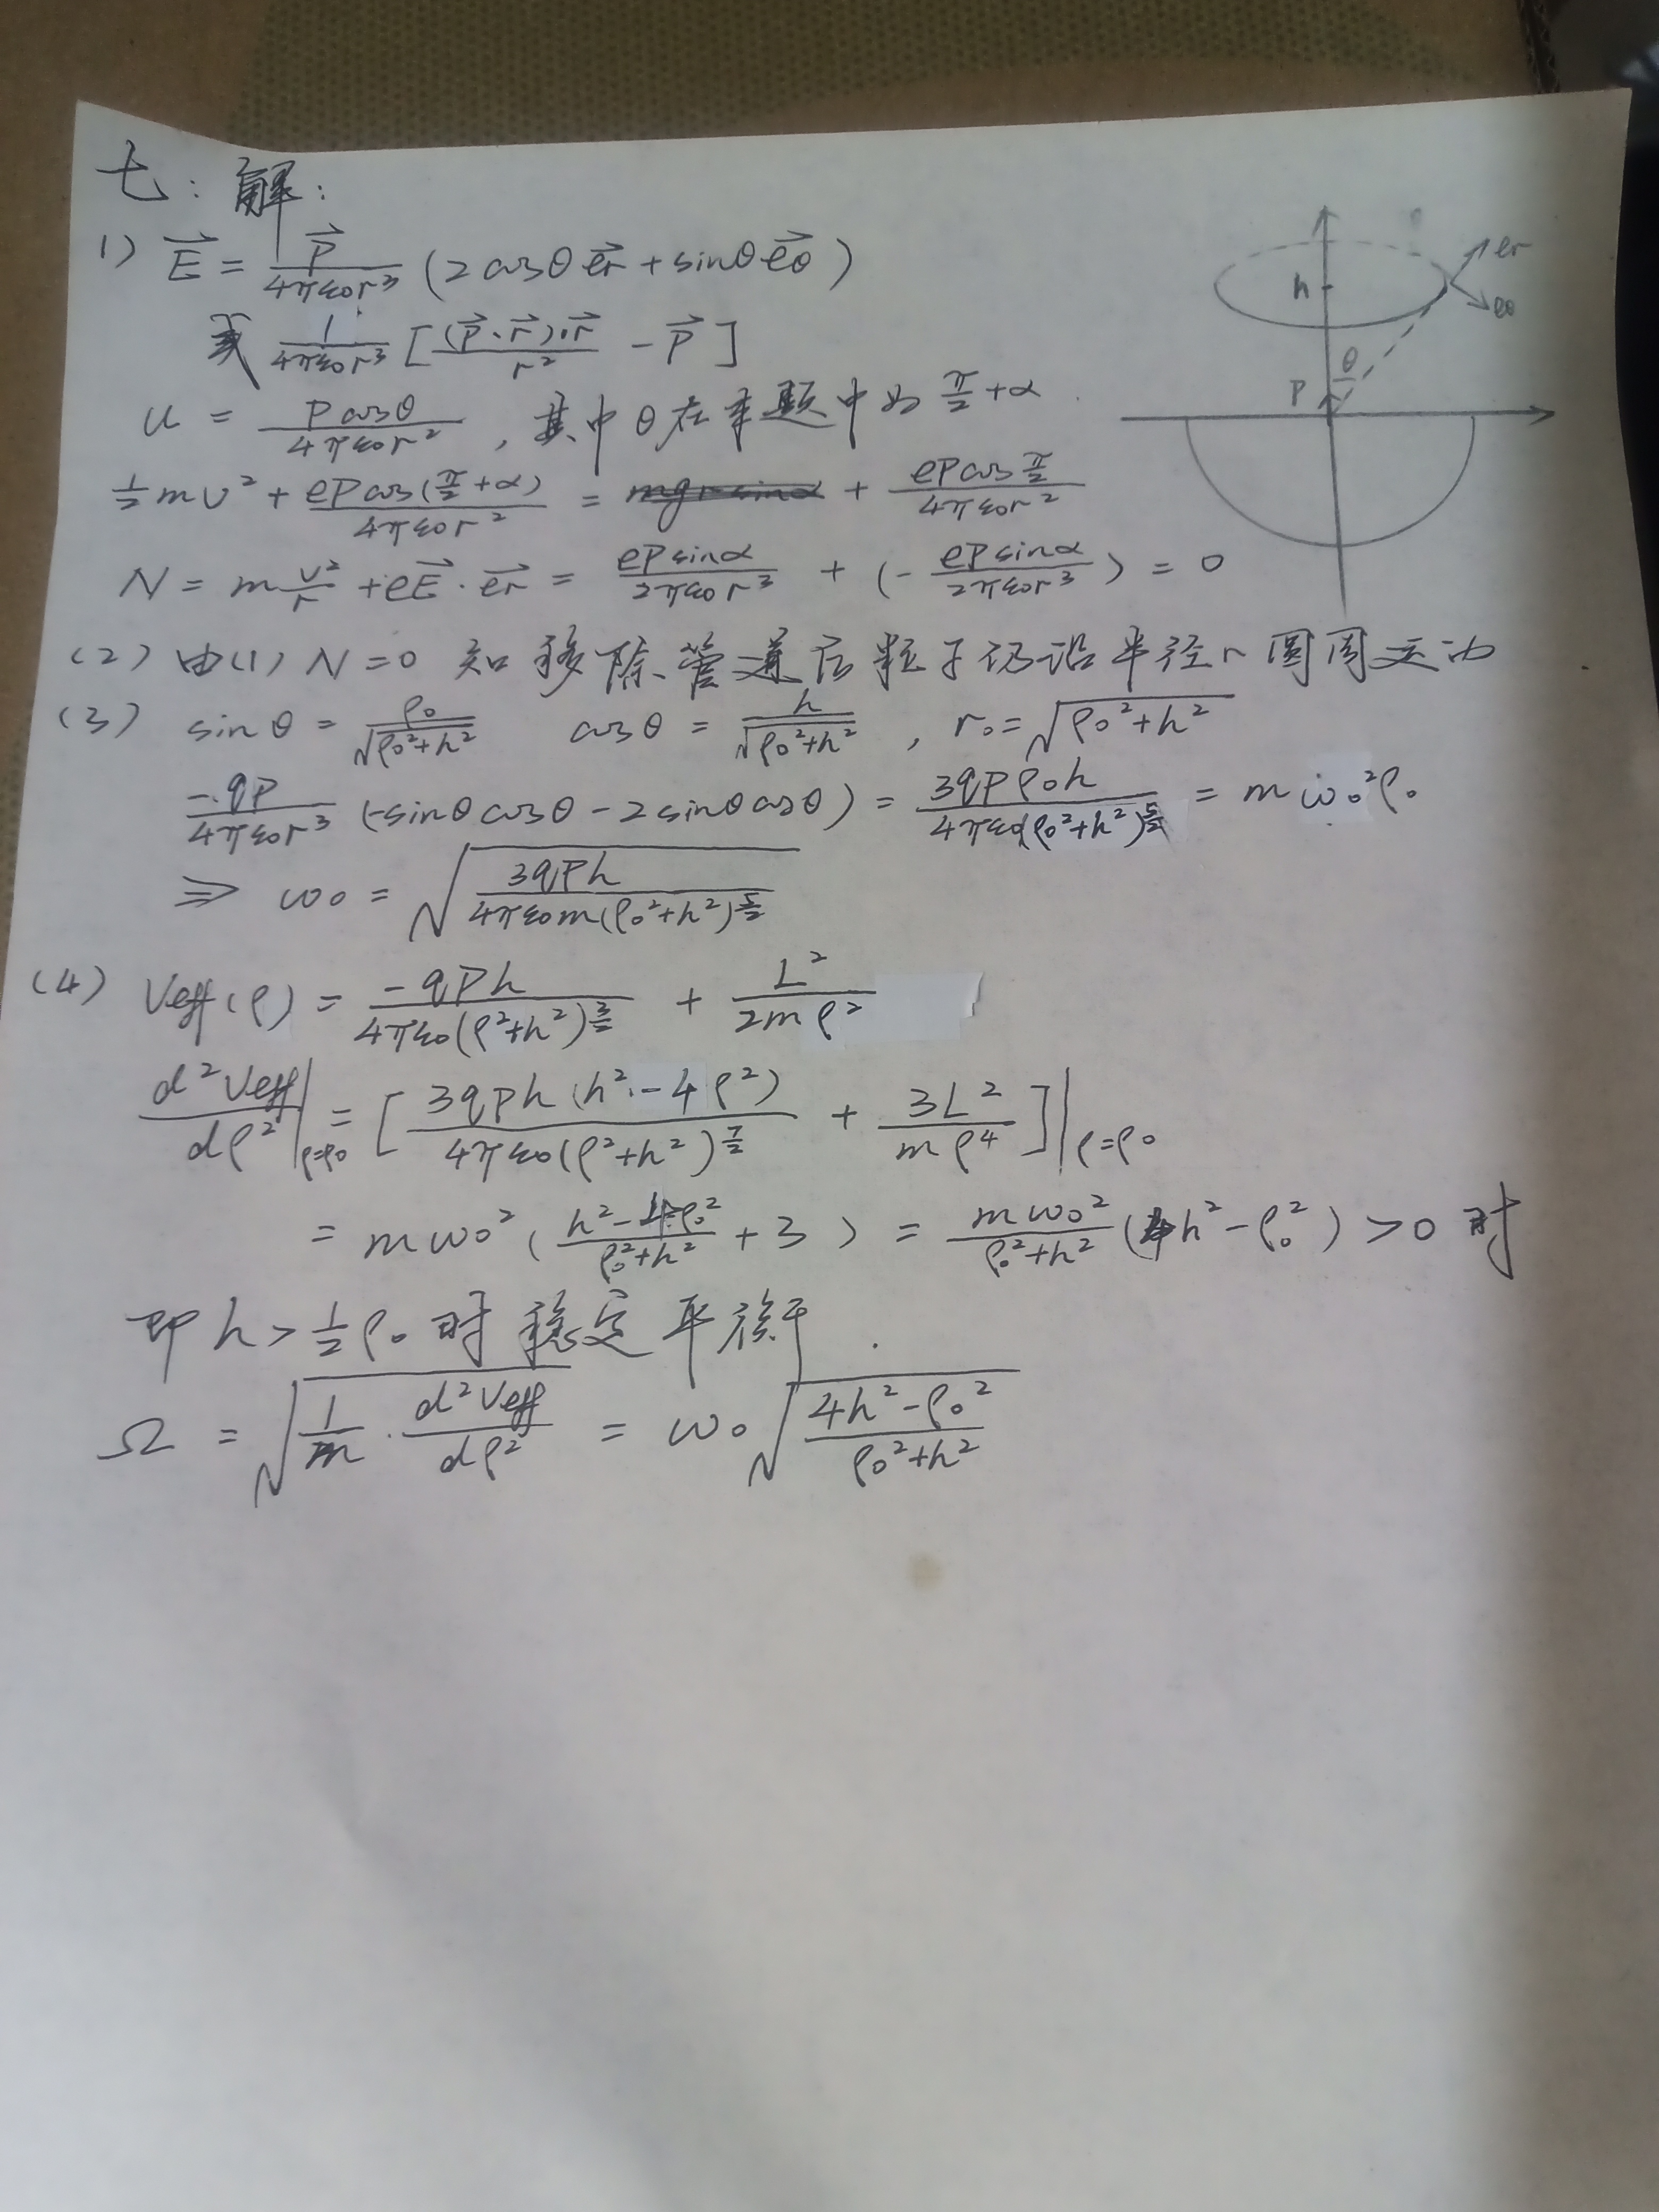 七：解：
1) $\vec{E} = \frac{\vec{P}}{4\pi\varepsilon_0 r^3}(2\cos\theta \vec{e_r} + \sin\theta \vec{e_\theta})$
或 $\frac{1}{4\pi\varepsilon_0 r^3}[\frac{(\vec{P}\cdot\vec{r})\cdot\vec{r}}{r^2} - \vec{P}]$
$u = \frac{P\cos\theta}{4\pi\varepsilon_0 r^2}$，其中θ在本题中为 $\frac{\pi}{2}+\alpha$.
$\frac{1}{2}mv^2 + \frac{eP\cos(\frac{\pi}{2}+\alpha)}{4\pi\varepsilon_0 r^2} = $ ~~$mgr\sin\alpha$~~ $+ \frac{eP\cos\frac{\pi}{2}}{4\pi\varepsilon_0 r^2}$
$N = m\frac{v^2}{r} + e\vec{E}\cdot\vec{e_r} = \frac{eP\sin\alpha}{2\pi\varepsilon_0 r^3} + (-\frac{eP\sin\alpha}{2\pi\varepsilon_0 r^3}) = 0$
(2) 由(1) N=0 知移除管道后粒子仍沿半径r圆周运动
(3) $\sin\theta = \frac{\rho_0}{\sqrt{\rho_0^2+h^2}}$ $\cos\theta = \frac{h}{\sqrt{\rho_0^2+h^2}}$，$r_0 = \sqrt{\rho_0^2+h^2}$
$\frac{-qP}{4\pi\varepsilon_0 r^3}(-\sin\theta\cos\theta - 2\sin\theta\cos\theta) = \frac{3qP\rho_0 h}{4\pi\varepsilon_0(\rho_0^2+h^2)^{\frac{5}{2}}} = m\omega_0^2\rho_0$
$\Rightarrow \omega_0 = \sqrt{\frac{3qPh}{4\pi\varepsilon_0 m(\rho_0^2+h^2)^{\frac{5}{2}}}}$
(4) $V_{eff}(\rho) = \frac{-qPh}{4\pi\varepsilon_0(\rho^2+h^2)^{\frac{3}{2}}} + \frac{L^2}{2m\rho^2}$
$\frac{d^2V_{eff}}{d\rho^2}|_{\rho=\rho_0} = [\frac{3qPh(h^2-4\rho^2)}{4\pi\varepsilon_0(\rho^2+h^2)^{\frac{7}{2}}} + \frac{3L^2}{m\rho^4}]|_{\rho=\rho_0}$
$= m\omega_0^2(\frac{h^2-4\rho_0^2}{\rho_0^2+h^2}+3) = \frac{m\omega_0^2}{\rho_0^2+h^2}(4h^2-\rho_0^2) > 0$ 时
即 $h > \frac{1}{2}\rho_0$ 时稳定平衡.
$\Omega = \sqrt{\frac{1}{m}\cdot\frac{d^2V_{eff}}{d\rho^2}} = \omega_0\sqrt{\frac{4h^2-\rho_0^2}{\rho_0^2+h^2}}$
er
h
eθ
θ
P